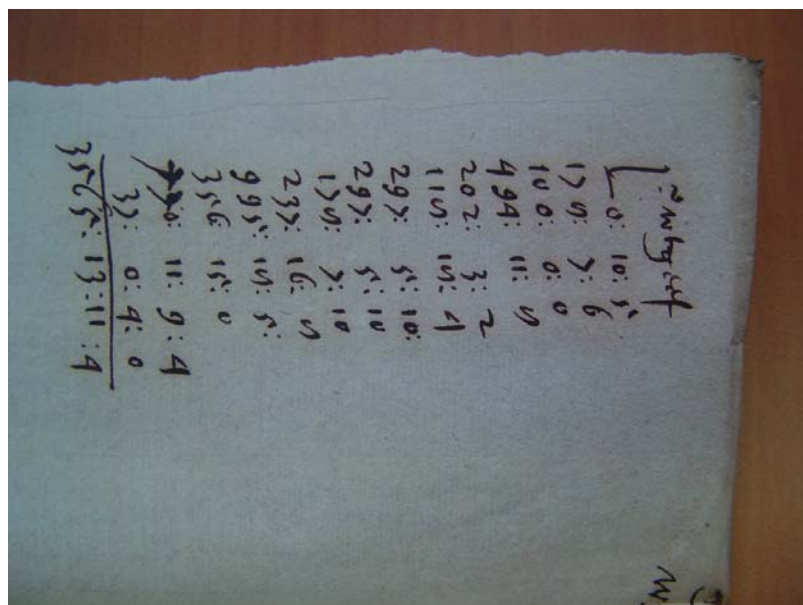 0: 10: 5
178: 7: 6
100: 0: 0
494: 11: 8
202: 3: 2
118: 18: 4
297: 5: 10:
297: 5: 10
178: 7: 10
237: 16: 8
995: 18: 5:
356: 15: 0
70: 11: 9: 4
37: 0: 4: 0
3565: 13: 11: 4